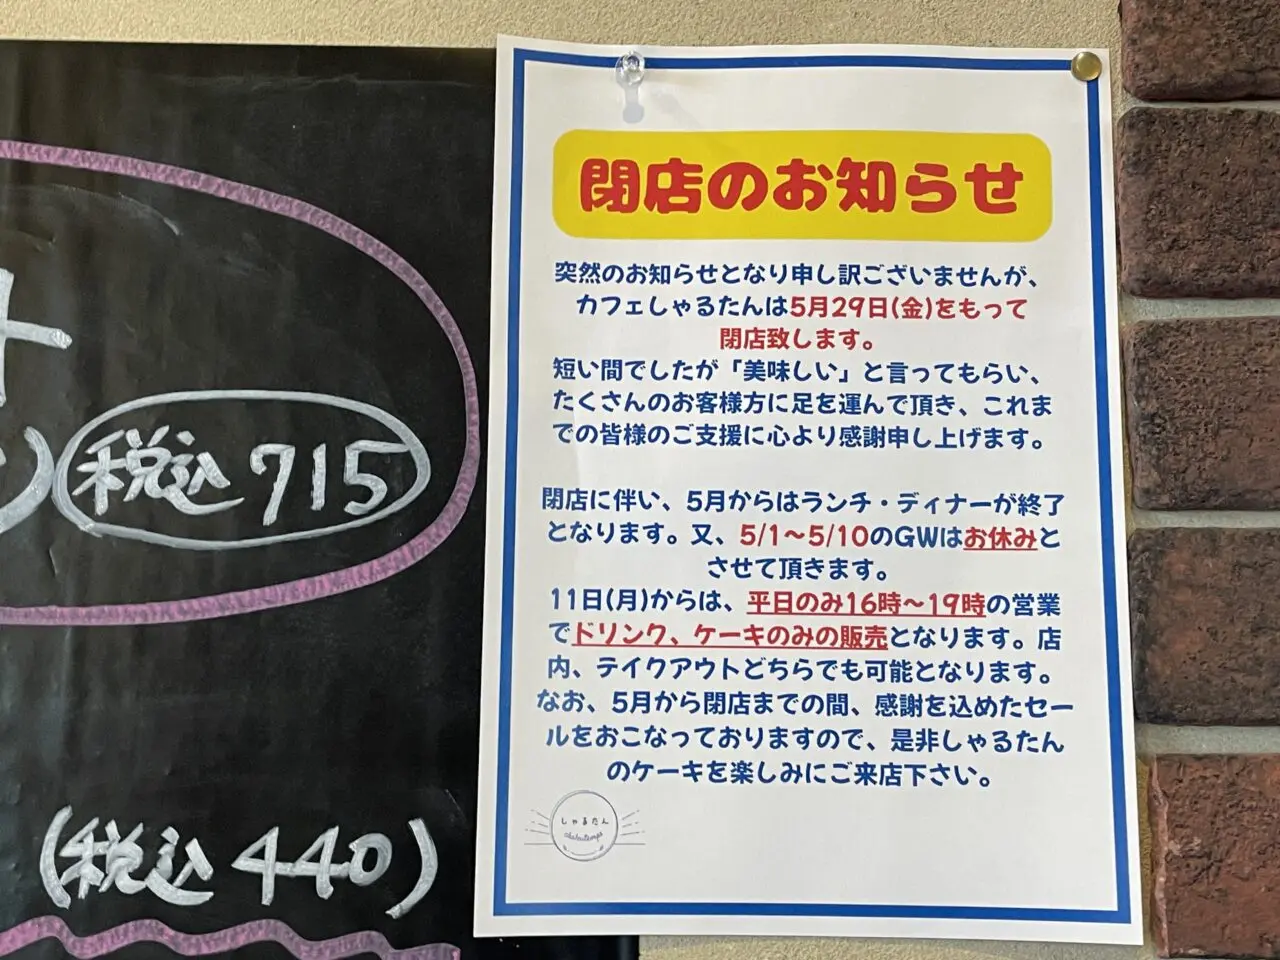 閉店のお知らせ
突然のお知らせとなり申し訳ございませんが、
カフェしゃるたんは5月29日(金)をもって
閉店致します。
短い間でしたが「美味しい」と言ってもらい、
たくさんのお客様方に足を運んで頂き、これま
での皆様のご支援に心より感謝申し上げます。
閉店に伴い、5月からはランチ・ディナーが終了
となります。又、5/1〜5/10のGWはお休みと
させて頂きます。
11日(月)からは、平日のみ16時〜19時の営業
でドリンク、ケーキのみの販売となります。店
内、テイクアウトどちらでも可能となります。
なお、5月から閉店までの間、感謝を込めたセー
ルをおこなっておりますので、是非しゃるたん
のケーキを楽しみにご来店下さい。
しゃるたん
税込715
(税込440)